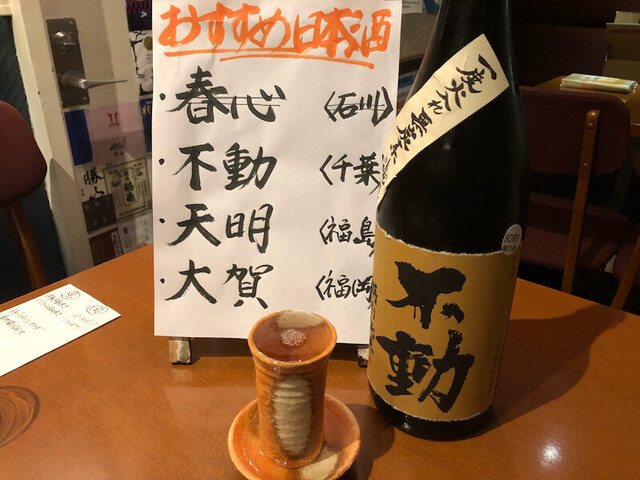 おすすめ日本酒
・春心 〈石川〉
・不動 〈千葉
・天明 〈福島
・大賀 〈福岡
一度火入れ
不動